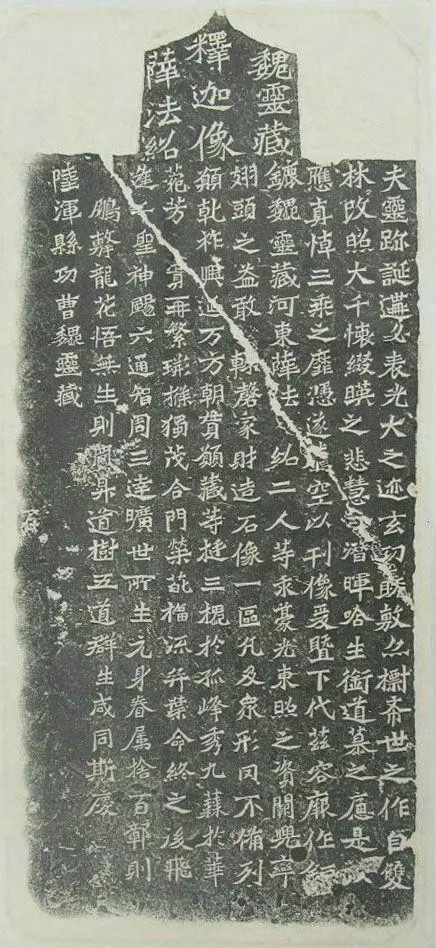 魏靈藏
釋迦像
薛法紹
夫靈跡誕遘必表光大之迹玄功既敷亦標希世之作自雙
林改照大千懷綴暎之悲慧潛暉哈生銜道慕之是
應真悼三乘之靡憑遂空以刊像爰暨下代茲容厥作
鏕魏靈藏河東薛法紹二人等求豪光東照之資闕兜率
翅頭之益敢輒罄家財造石像一區凡及衆形罔不備列
願乾祚興延万方朝貫願藏等挺三槐於孤峰秀九蕀於華
苑芳實再繁荊條獨茂合門榮葩福流奕葉命終之後飛
千聖神颺六通智周三達曠世所生元身眷屬捨百鄣則
鵬擊龍花悟無生則鳳昇道樹五道群生咸同斯慶
陸渾縣功曹魏靈藏